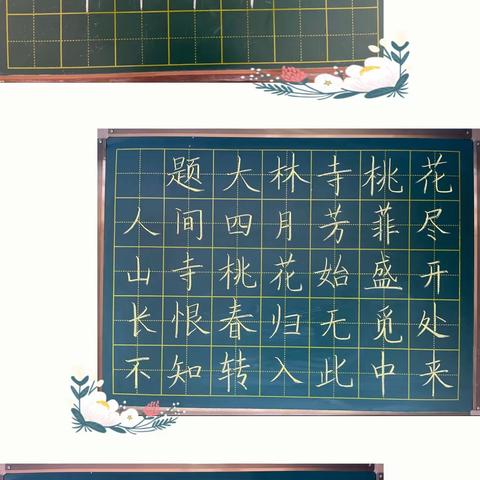 题大林寺桃花
人间四月芳菲尽
山寺桃花始盛开
长恨春归无觅处
不知转入此中来